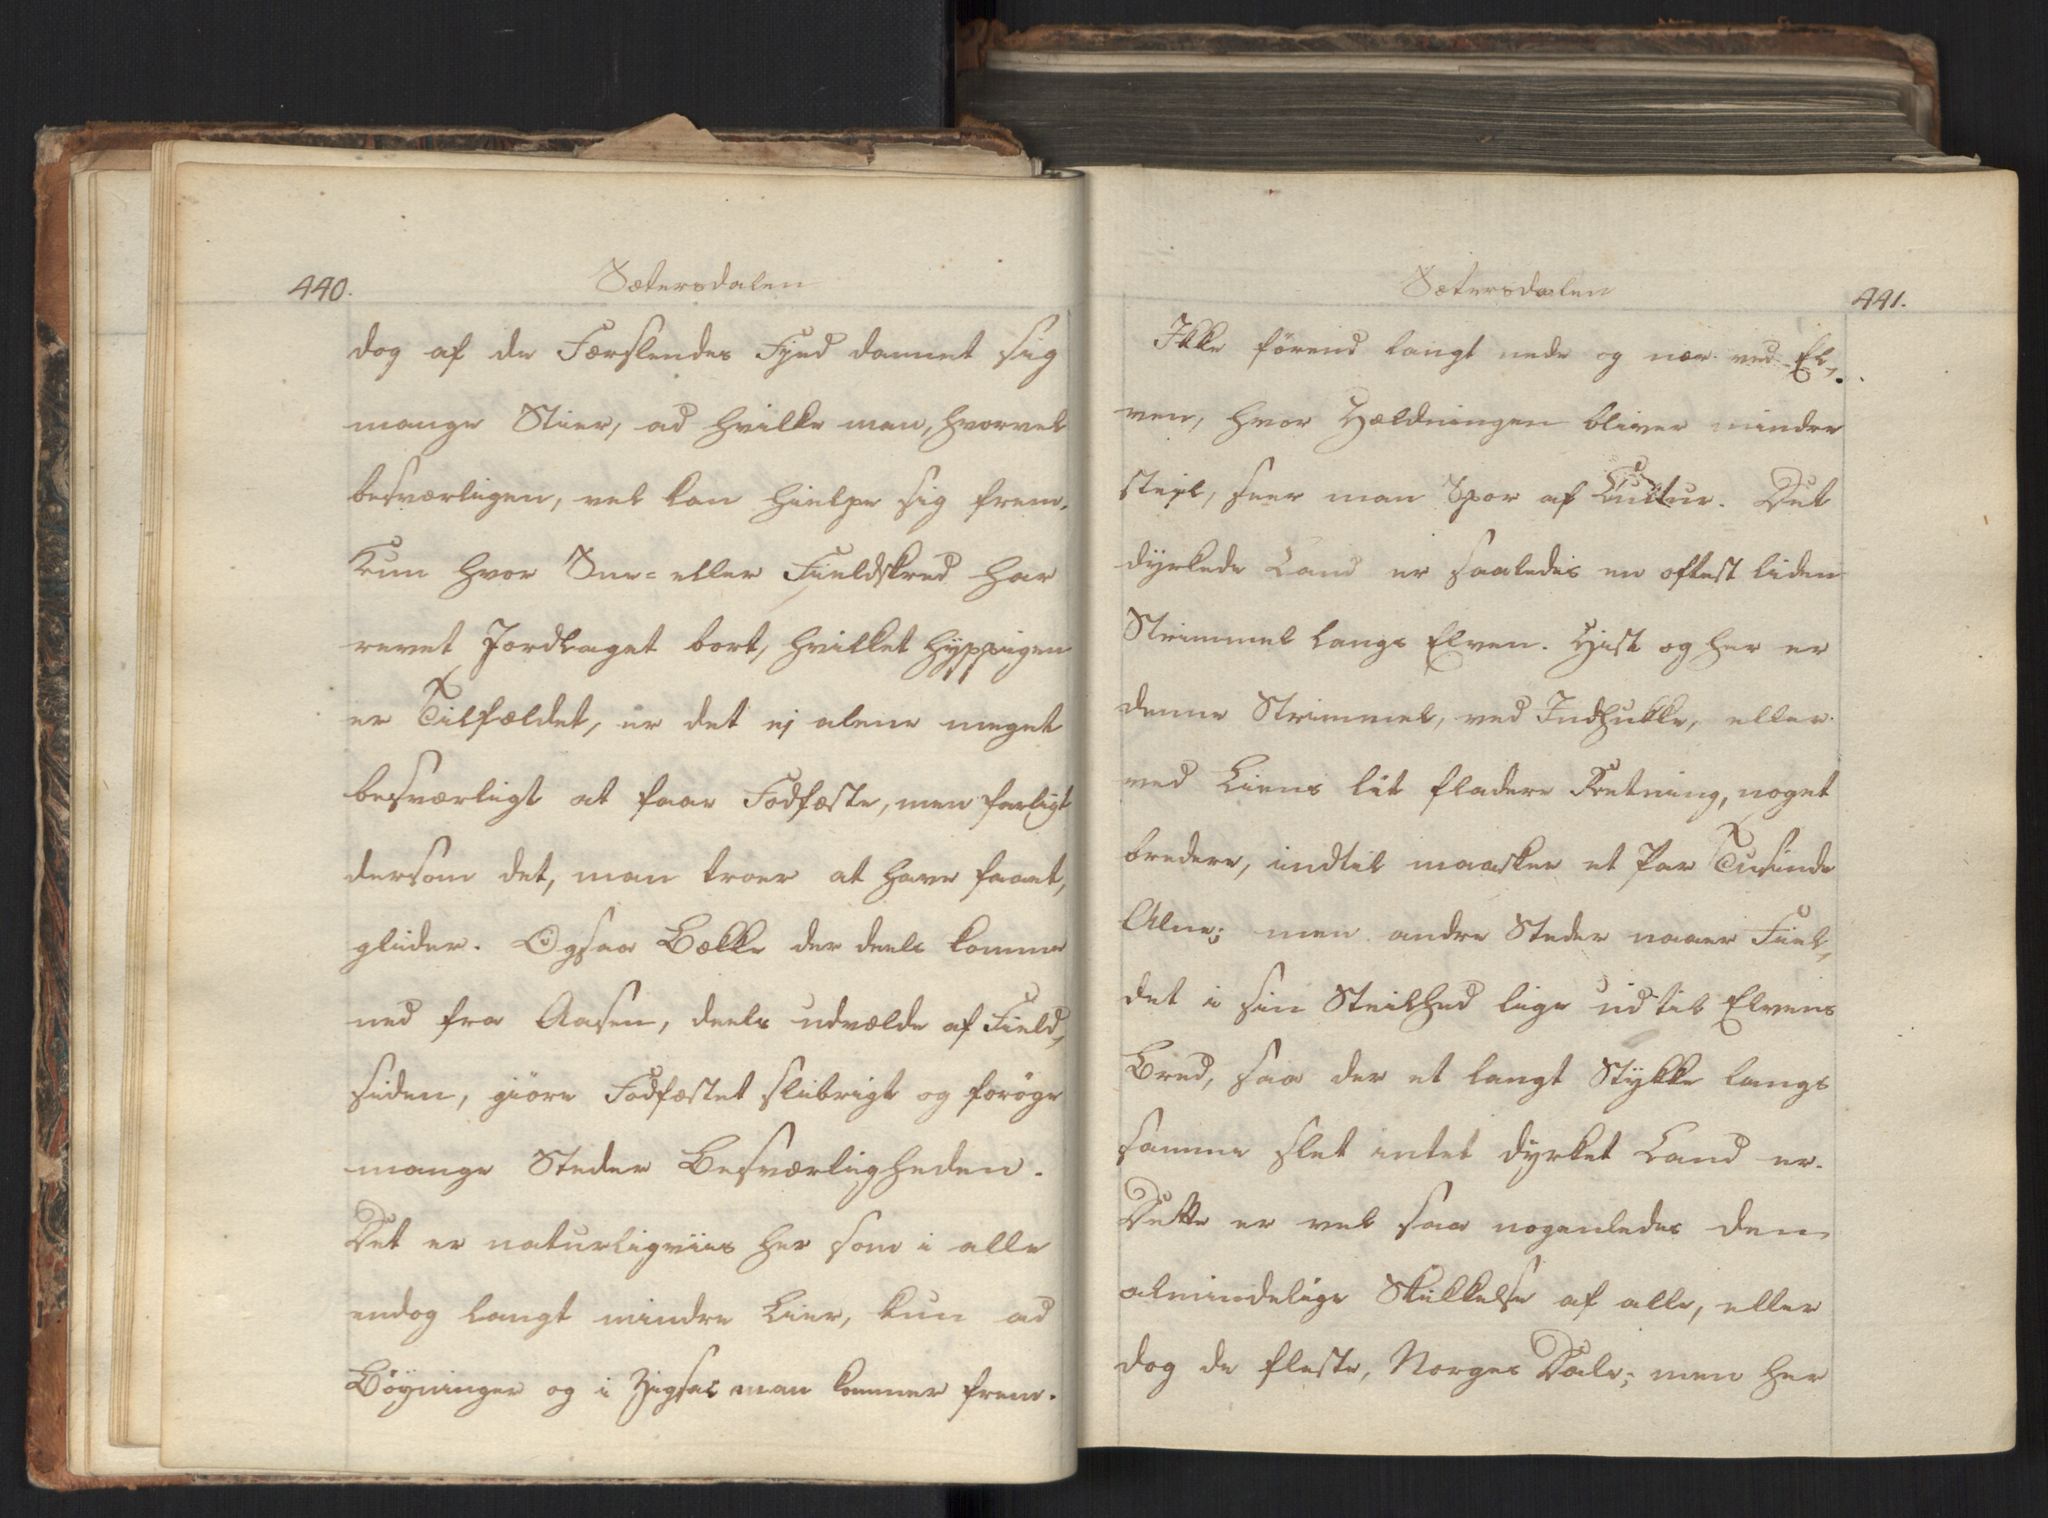 440.
Sætersdalen
dog af de Færslendes Fjed dannet sig
mange Stier, ad hvilke man, hvorvel
besværligen, vel kan hielpe sig frem.
Kun hvor Snee= eller Fieldskred har
revet Jordlaget bort, hvilket hyppigen
er Tilfældet, er det ej alene meget
besværligt at faae Fodfæste, men farligt
dersom det, man troer at have faaet,
glider. Ogsaa Bække der deels komme
ned fra Aasen, deels udvælde af Field-
siden, giöre Fodfæstet slibrigt og foröge
mange Steder Besværligheden.
Det er naturligviis her som i alle
endog langt mindre Lier, kun ad
Böyninger og i Zigsac man kommer frem.
Sætersdalen
441.
Ikke förend langt nede og nær ved El-
ven, hvor Hældningen bliver mindre
steil, seer man Spor af Cultur. Det
dyrkede Land er saaledes en oftest liden
Strimmel langs Elven. Hist og her er
denne Strimmel, ved Indhukke, eller
ved Liens lit fladere Retning, noget
bredere, indtil maaskee et Par Tusinde
Alne; men andre Steder naaer Fiel-
det i sin Steilhed lige ud til Elvens
Bred, saa der et langt Stykke langs
samme slet intet dyrket Land er.
Dette er vel saa nogenledes den
almindelige Skikkelse af alle, eller
dog de fleste, Norges Dale; men her